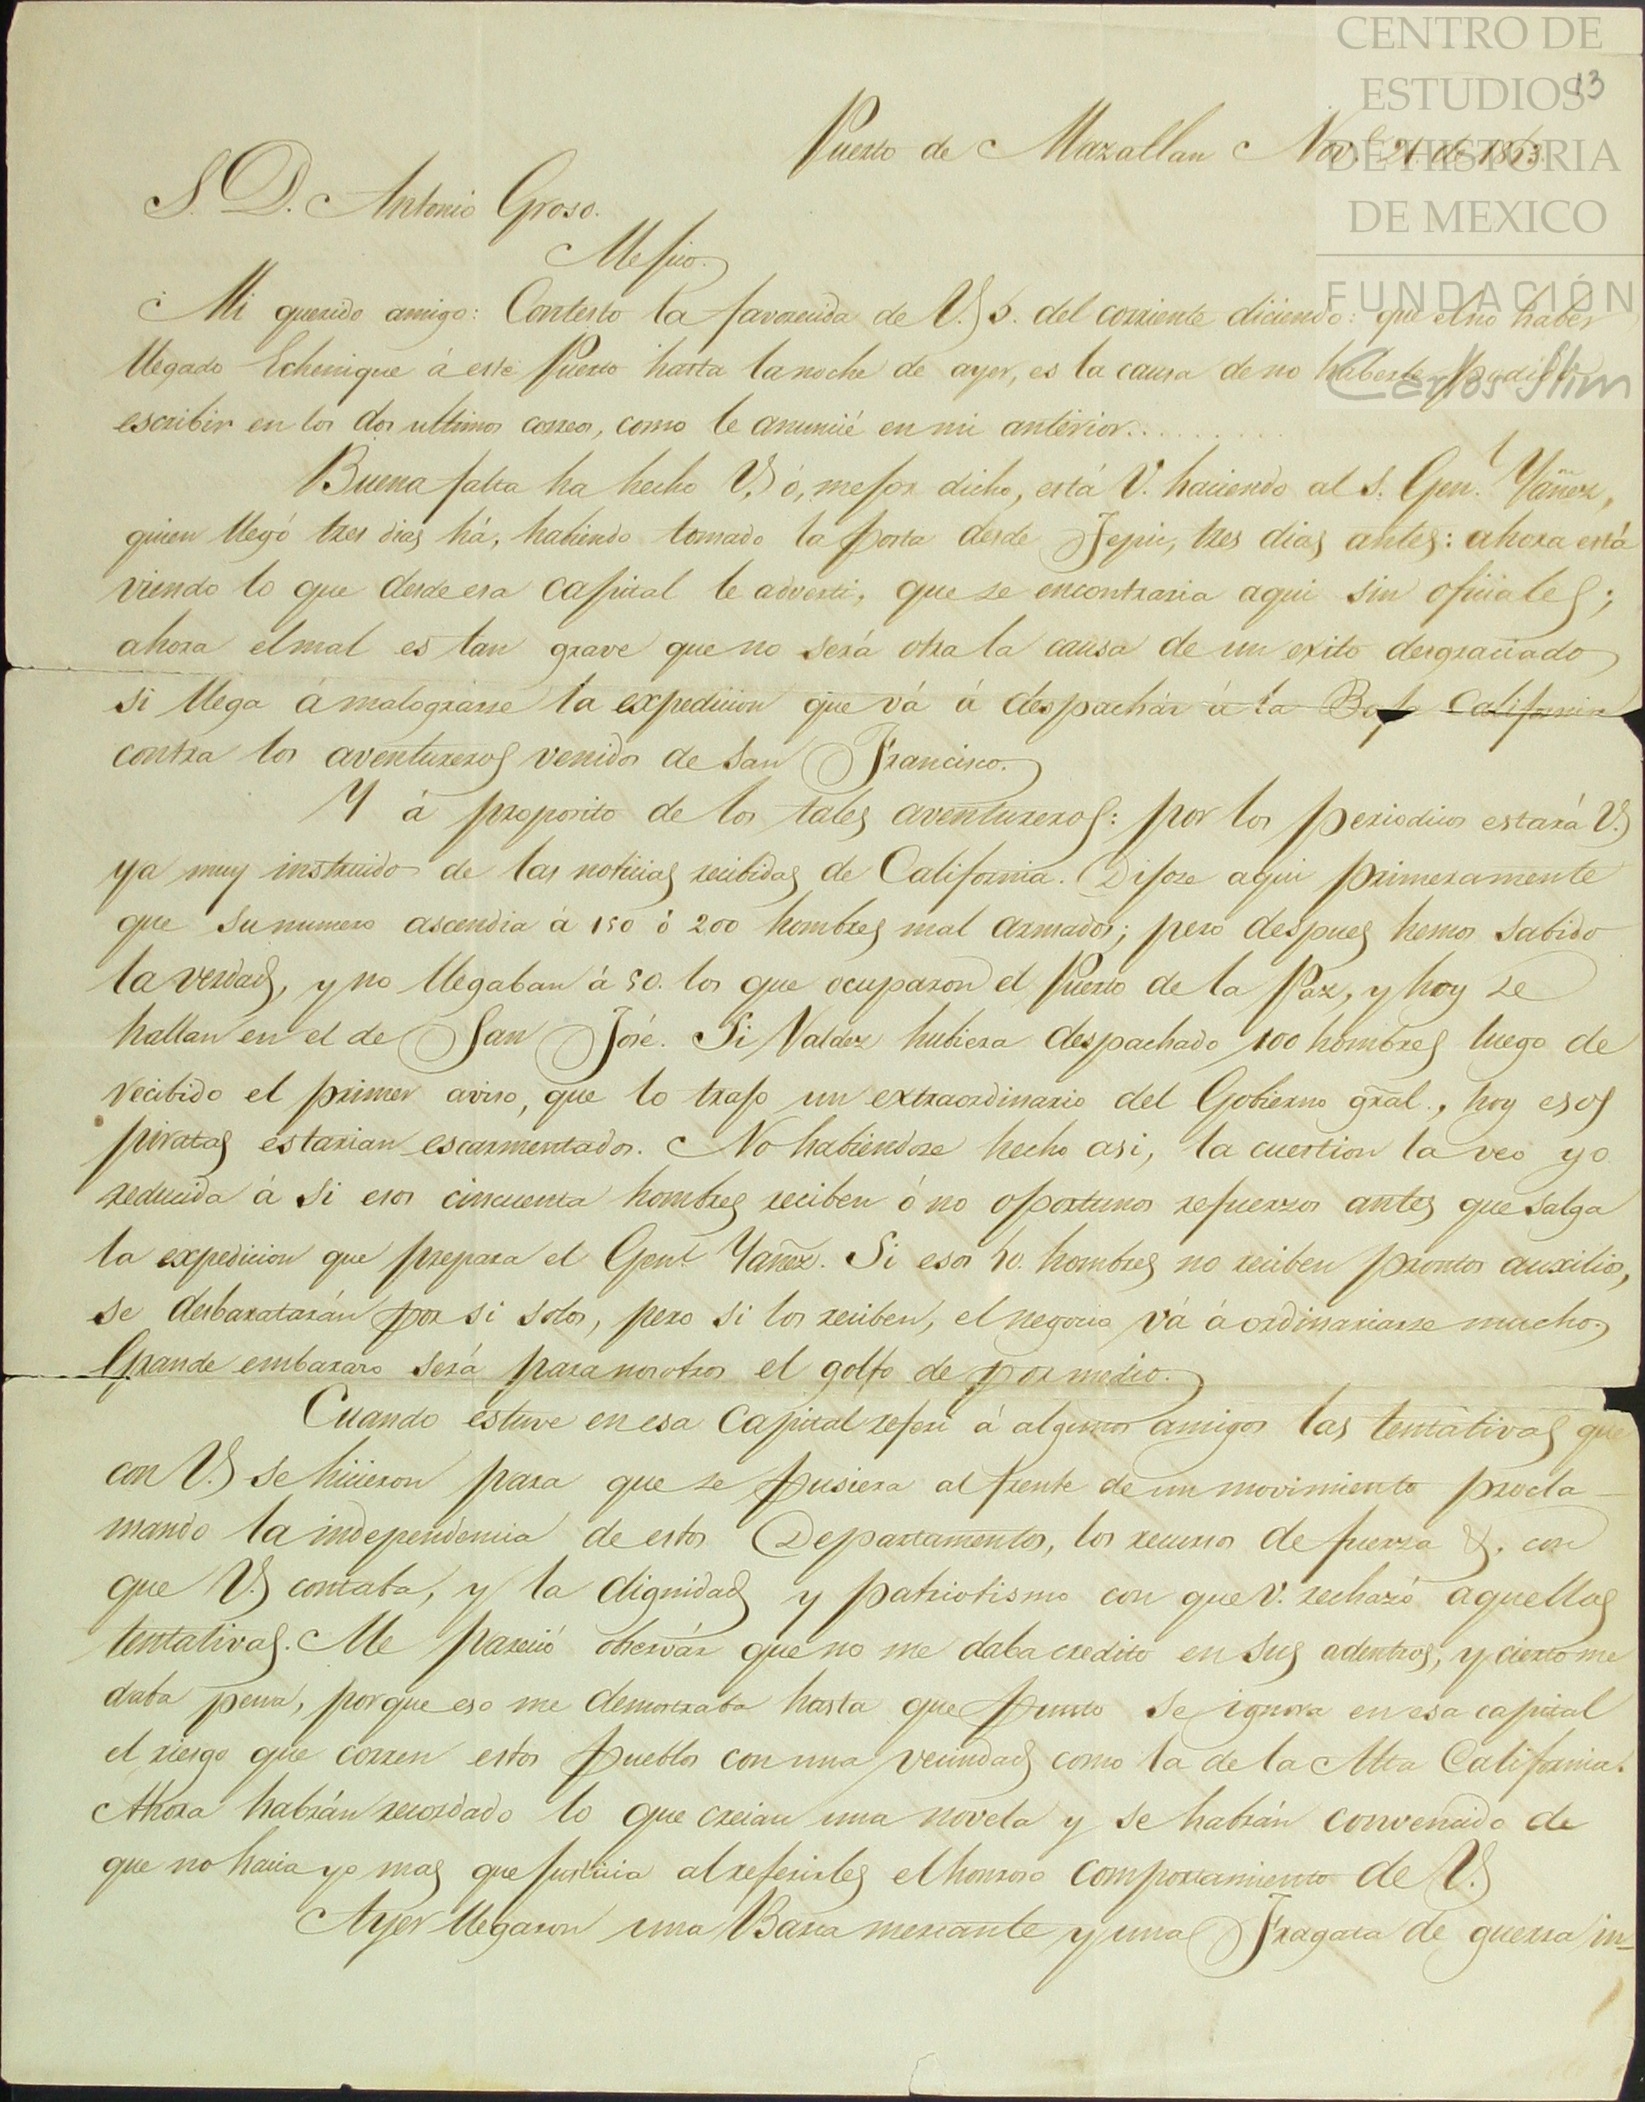 CENTRO DE
ESTUDIOS
DE HISTORIA
DE MEXICO
FUNDACIÓN
Carlos Slim
13
Puerto de Mazatlan Nov. 21 de 1853.
S. D. Antonio Groso.
Mejico.
Mi querido amigo: Contesto la favorecida de V. 5. del corriente diciendo: que el no haber
llegado Echenique á este Puerto hasta la noche de ayer, es la causa de no haberle podido
escribir en los dos ultimos correos, como le anuncié en mi anterior.........
Buena falta ha hecho V. ó, mejor dicho, está V. haciendo al S. Gen.l Yáñez,
quien llegó tres dias há, habiendo tomado la posta desde Tepic, tres dias antes: ahora está
viendo lo que desde esa capital le adverti, que se encontraria aqui sin oficiales;
ahora el mal es tan grave que no será otra la causa de un exito desgraciado
si llega á malograrse la expedicion que vá á despachár á la Baja California
contra los aventureros venidos de San Francisco.
Y á proposito de los tales aventureros: por los periodicos estará V.
ya muy instruido de las noticias recibidas de California. Dijose aqui primeramente
que su numero ascendia á 150 ó 200 hombres mal armados; pero despues hemos sabido
la verdad, y no llegaban á 50. los que ocuparon el Puerto de la Paz, y hoy se
hallan en el de San José. Si Valdez hubiera despachado 100 hombres luego de
recibido el primer aviso, que lo trajo un extraordinario del Gobierno gral., hoy esos
piratas estarian escarmentados. No habiendose hecho asi, la cuestion la veo yo
reducida á si esos cincuenta hombres reciben ó no oportunos refuerzos antes que salga
la expedicion que prepara el Genl Yañez. Si esos 50. hombres no reciben prontos auxilios,
se desbaratarán por si solos, pero si los reciben, el negocio vá á ordinariarse mucho.
Grande embarazo será para nosotros el golfo de por medio.
Cuando estuve en esa Capital referi á algunos amigos las tentativas que
con V. se hicieron para que se pusiera al frente de un movimiento procla-
mando la independencia de estos Departamentos, los recursos de fuerza &. con
que V. contaba, y la dignidad y patriotismo con que V. rechazó aquellas
tentativas. Me pareció observár que no me daba credito en sus adentros, y cierto me
daba pena, porque eso me demostraba hasta que punto se ignora en esa capital
el riesgo que corren estos pueblos con una vecindad como la de la Alta California.
Ahora habrán recordado lo que creian una novela y se habrán convencido de
que no hacia yo mas que justicia al referirles el honroso comportamiento de V.
Ayer llegaron una Barca mercante y una Fragata de guerra in-